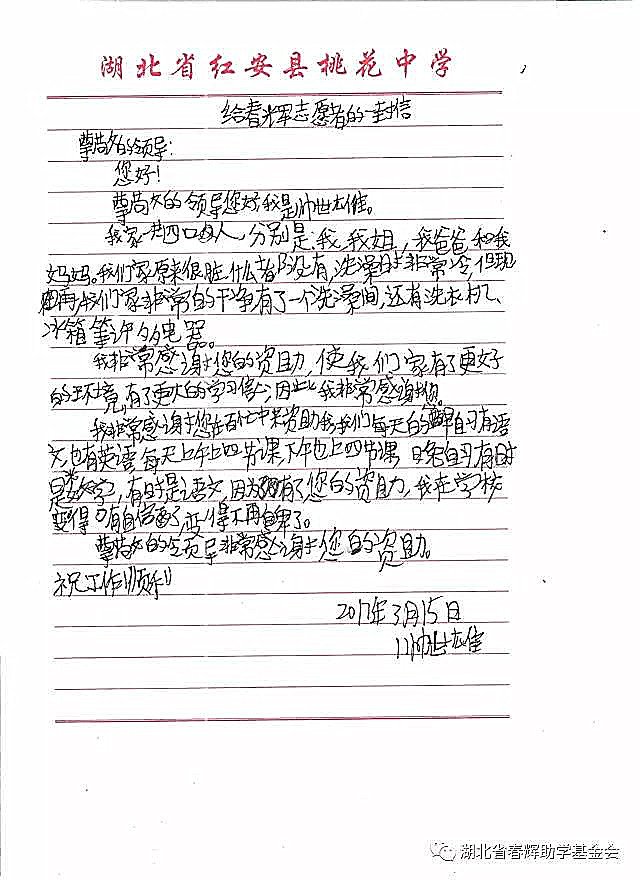 湖北省红安县桃花中学
给春辉志愿者的一封信
尊敬的领导:
您好!
尊敬的领导您好,我是帅世佳。
我家一共四口人,分别是:我,我姐,我爸爸和我
妈妈。我们家原来很脏,什么都没有,洗澡时非常冷,但现
在我们家非常的干净有了一个洗澡间,还有洗衣机、
冰箱等许多电器。
我非常感谢您的资助,使我们家有了更好
的环境,有了更大的学习信心,因此我非常感谢您。
我非常感谢您在百忙中来资助我,我们每天的早自习有语
文,也有英语,每天上午上四节课,下午也上四节课,晚自习有时
是数学,有时是语文,因为有了您的资助,我在学校
变得有自信了,变得不再自卑了。
尊敬的领导非常感谢您的资助。
祝工作顺利
2017年3月15日
帅世佳
湖北省春辉助学基金会